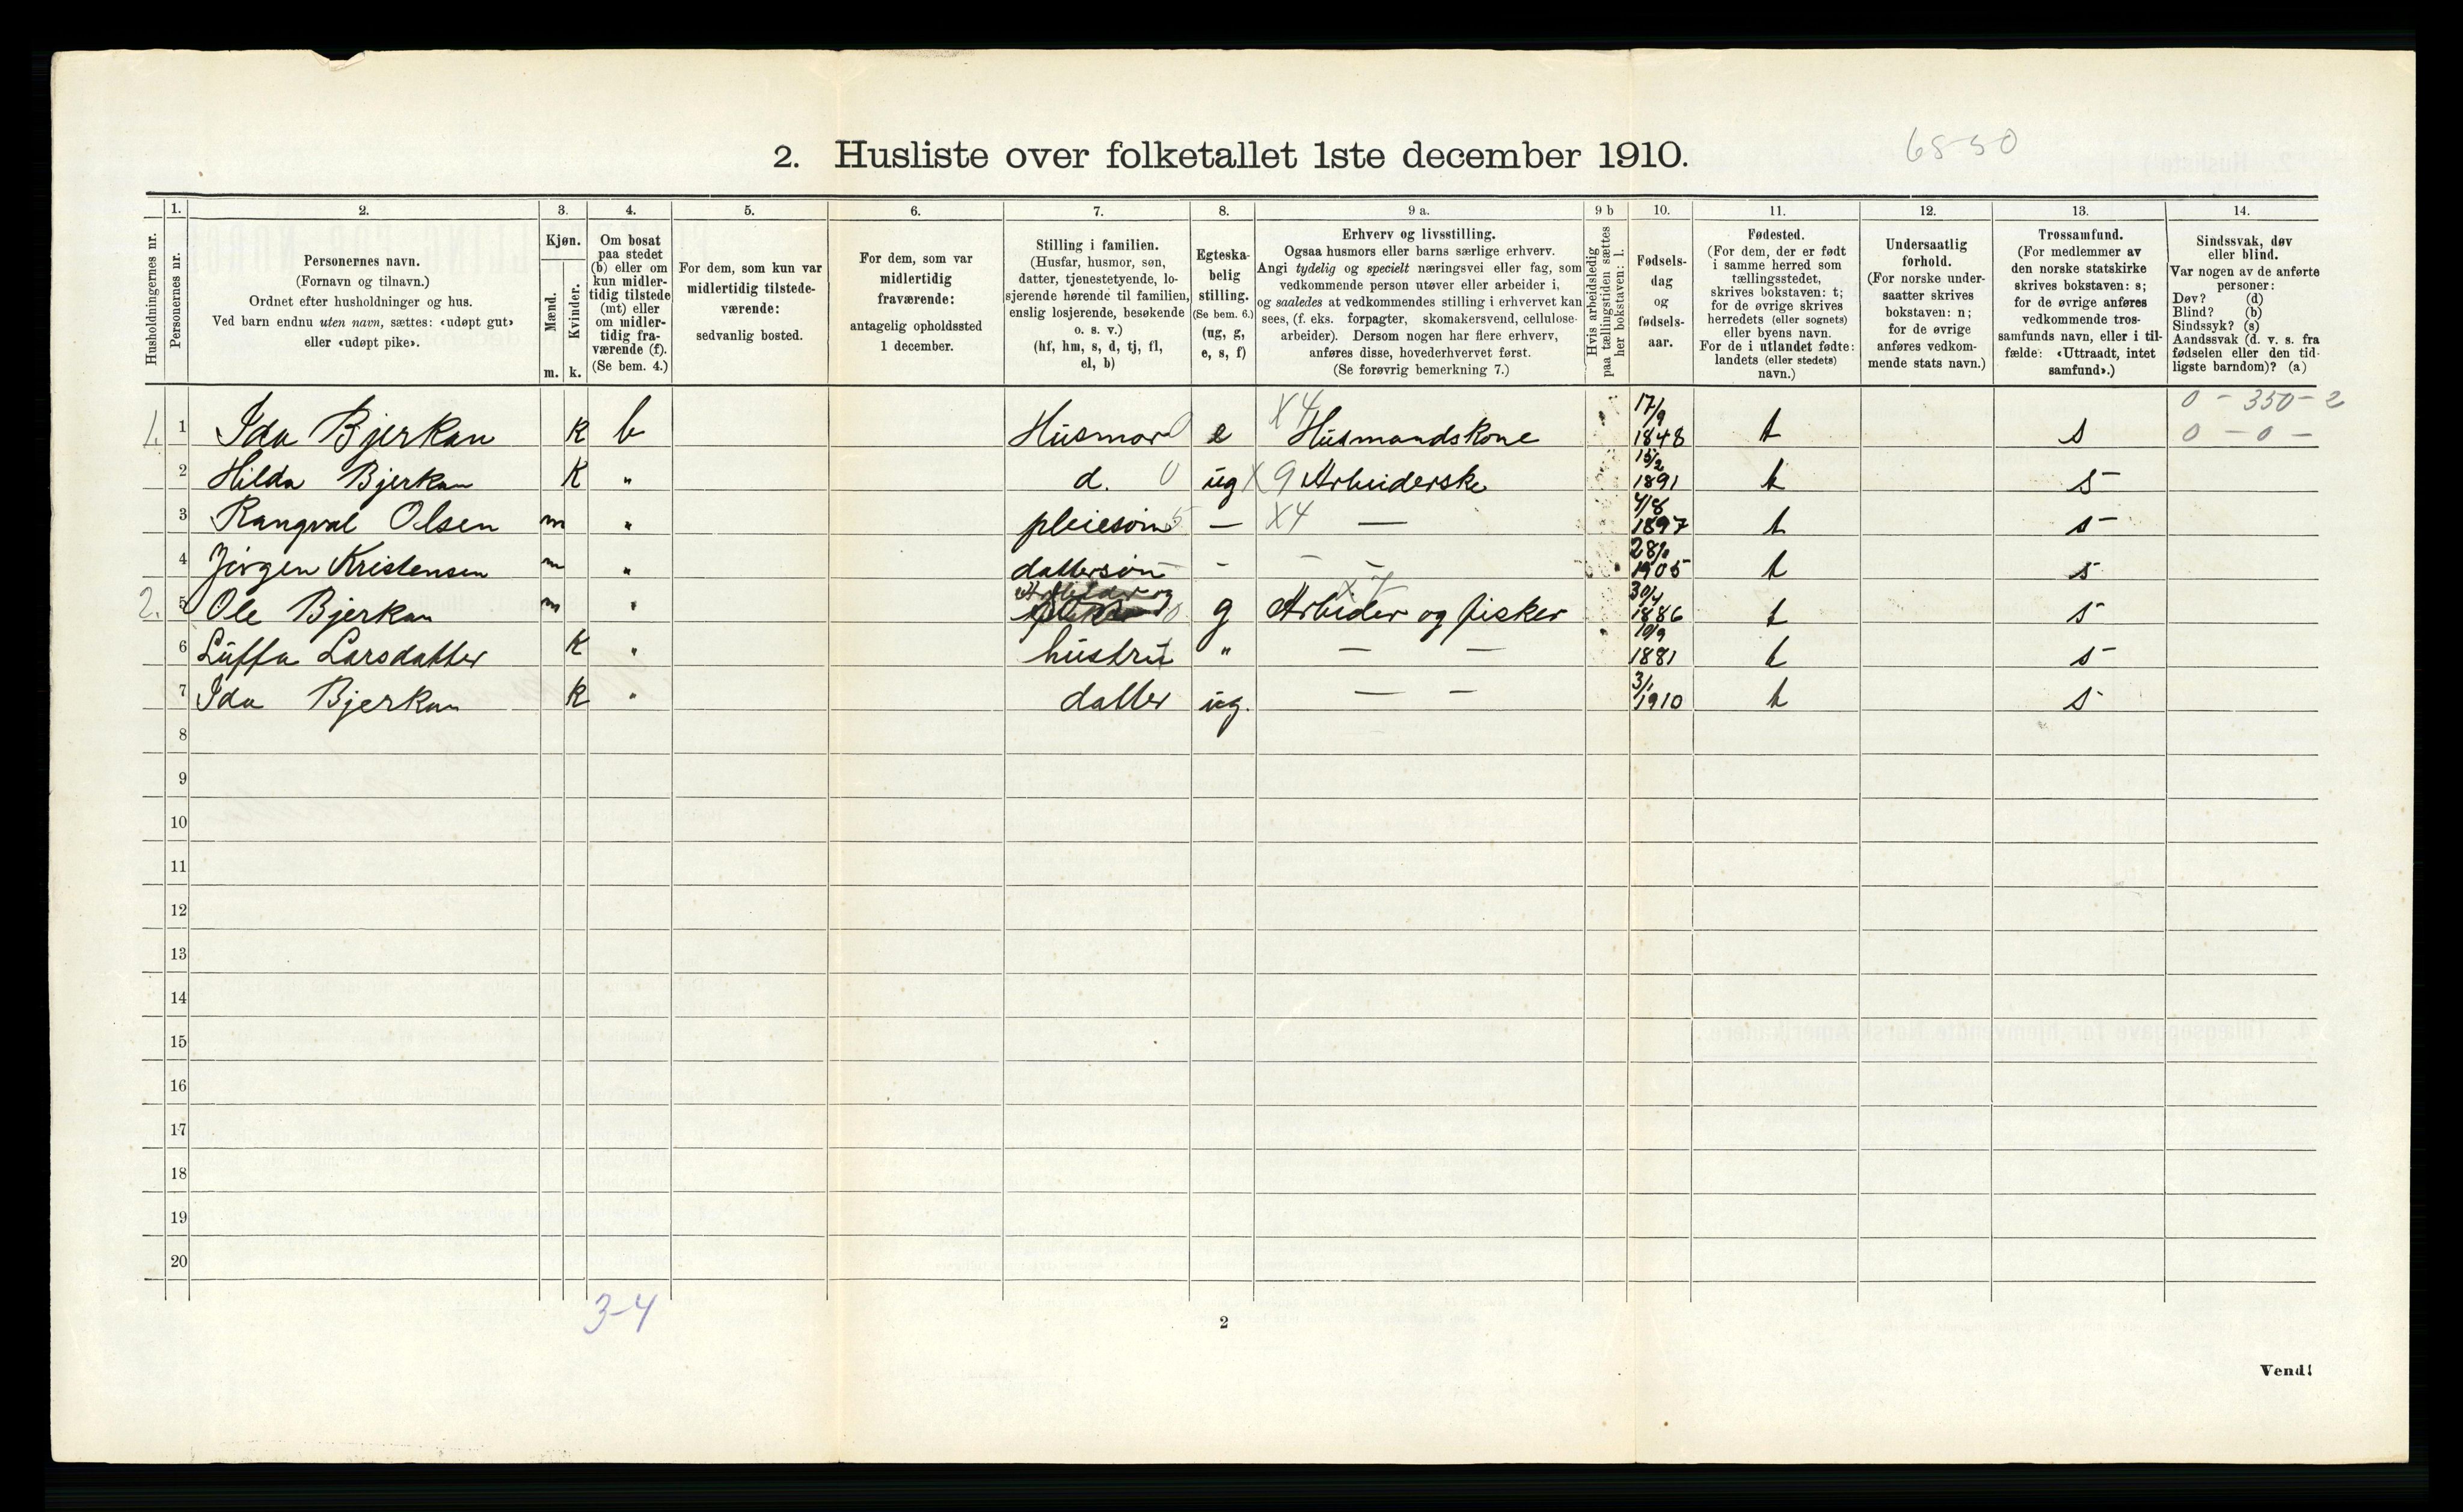 2. Husliste over folketallet 1ste december 1910.
65-50
Husholdningernes nr.
1.
Personernes nr.
2.
Personernes navn.
(Fornavn og tilnavn.)
Ordnet efter husholdninger og hus.
Ved barn endnu uten navn, sættes: «udøpt gut»
eller «udøpt pike».
3.
Kjøn.
Mænd.
Kvinder.
m. k.
4.
Om bosat
paa stedet
(b) eller om
kun midler-
tidig tilstede
(mt) eller
om midler-
tidig fra-
værende (f).
(Se bem. 4.)
5.
For dem, som kun var
midlertidig tilstede-
værende:
sedvanlig bosted.
6.
For dem, som var
midlertidig
fraværende:
antagelig opholdssted
1 december.
7.
Stilling i familien.
(Husfar, husmor, søn,
datter, tjenestetyende, lo-
sjerende hørende til familien,
enslig losjerende, besøkende
o. s. v.)
(hf, hm, s, d, tj, fl,
el, b)
8.
Egteska-
belig
stilling.
(Se bem. 6.)
(ug, g,
e, s, f)
9 a.
Erhverv og livsstilling.
Ogsaa husmors eller barns særlige erhverv.
Angi tydelig og specielt næringsvei eller fag, som
vedkommende person utøver eller arbeider i,
og saaledes at vedkommendes stilling i erhvervet kan
sees, (f. eks. forpagter, skomakersvend, cellulose-
arbeider). Dersom nogen har flere erhverv,
anføres disse, hovederhvervet først.
(Se forøvrig bemerkning 7.)
9 b
Hvis arbeidsledig
paa tællingstiden sættes
her bokstaven: l.
10.
Fødsels-
dag
og
fødsels-
aar.
11.
Fødested.
(For dem, der er født
i samme herred som
tællingsstedet,
skrives bokstaven: t;
for de øvrige skrives
herredets (eller sognets)
eller byens navn.
For de i utlandet fødte:
landets (eller stedets)
navn.)
12.
Undersaatlig
forhold.
(For norske under-
saatter skrives
bokstaven: n;
for de øvrige
anføres vedkom-
mende stats navn.)
13.
Trossamfund.
(For medlemmer av
den norske statskirke
skrives bokstaven: s;
for de øvrige anføres
vedkommende tros-
samfunds navn, eller i til-
fælde: «Uttraadt, intet
samfund».)
14.
Sindssvak, døv
eller blind.
Var nogen av de anførte
personer:
Døv? (d)
Blind? (b)
Sindssyk? (s)
Aandssvak (d. v. s. fra
fødselen eller den tid-
ligste barndom)? (a)
0 - 350 - 2
0 - 0 -
1. 1 Ida Bjerkan K b Husmor 0 e X4 Husmandskone 17/9 1848 t s
2 Hilda Bjerkan K " d. 0 ug X9 Arbeiderske 15/2 1891 t s
3 Rangval Olsen m " pleiesøn 5 — X4 — 4/8 1897 t s
4 Jørgen Kristensen m " dattersøn - - - 1905 t s
2. 5 Ole Bjerkan m " Arbeider og fisker 0 g X7 Arbeider og fisker 30/4 1886 t s
6 Luffa Larsdatter K " hustru " — — 10/9 1881 t s
7 Ida Bjerkan K " datter ug. — — 3/1 1910 t s
8
9
10
11
12
13
14
15
16
17
18
19
20
3-4
2
Vend!